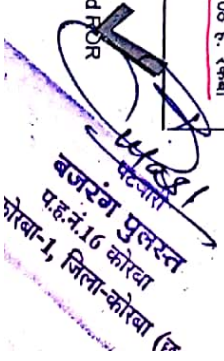 d ROR
पटवारी
बजरंग पुलस्त
प.ह.नं.16 कोरबा
कोरबा-1, जिला-कोरबा (छ